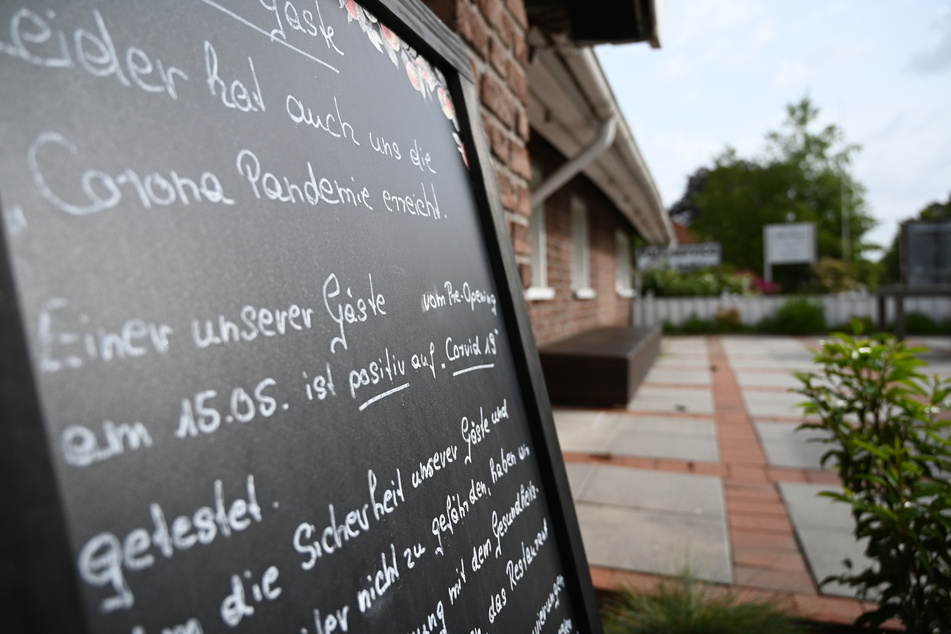 Gäste
Leider hat auch uns die
Corona Pandemie erreicht.
Einer unserer Gäste vom Pre-Opening
am 15.05. ist positiv auf "Corvid 19"
getestet.
die Sicherheit unserer Gäste und
nicht zu gefährden, haben wir
mit dem Gesundheits-
das Restaurant